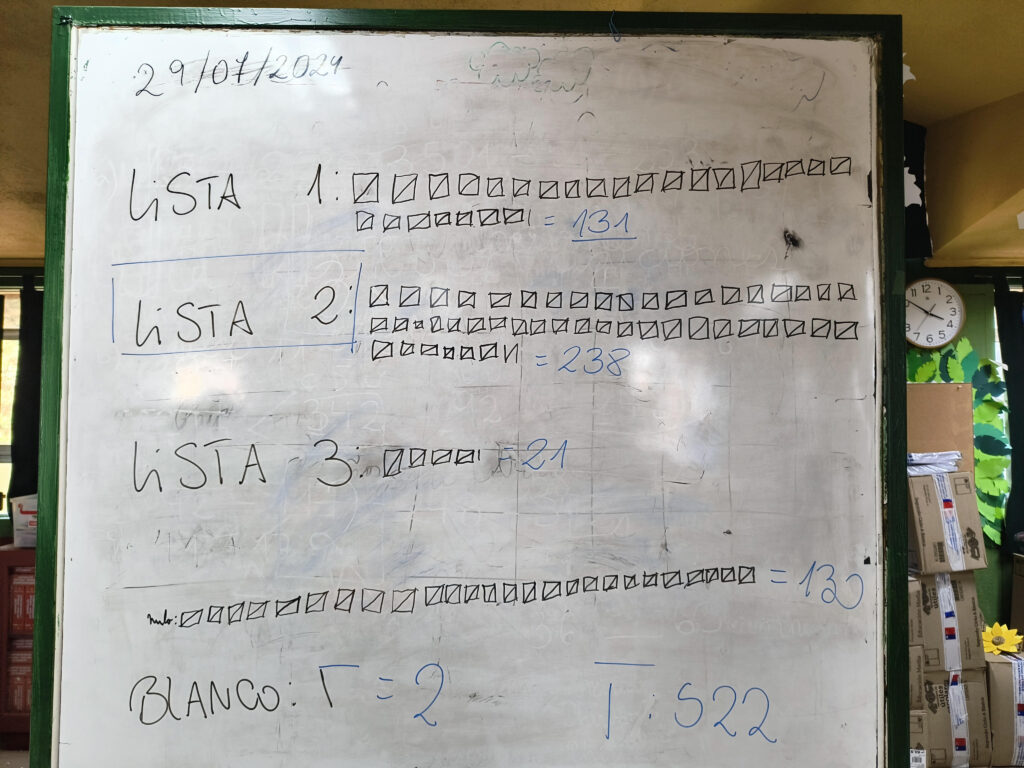 29/07/2024
LiSTA 1:
= 131
LiSTA 2:
= 238
LiSTA 3:
= 21
nulo: = 130
BLANCO: = 2
T: 522